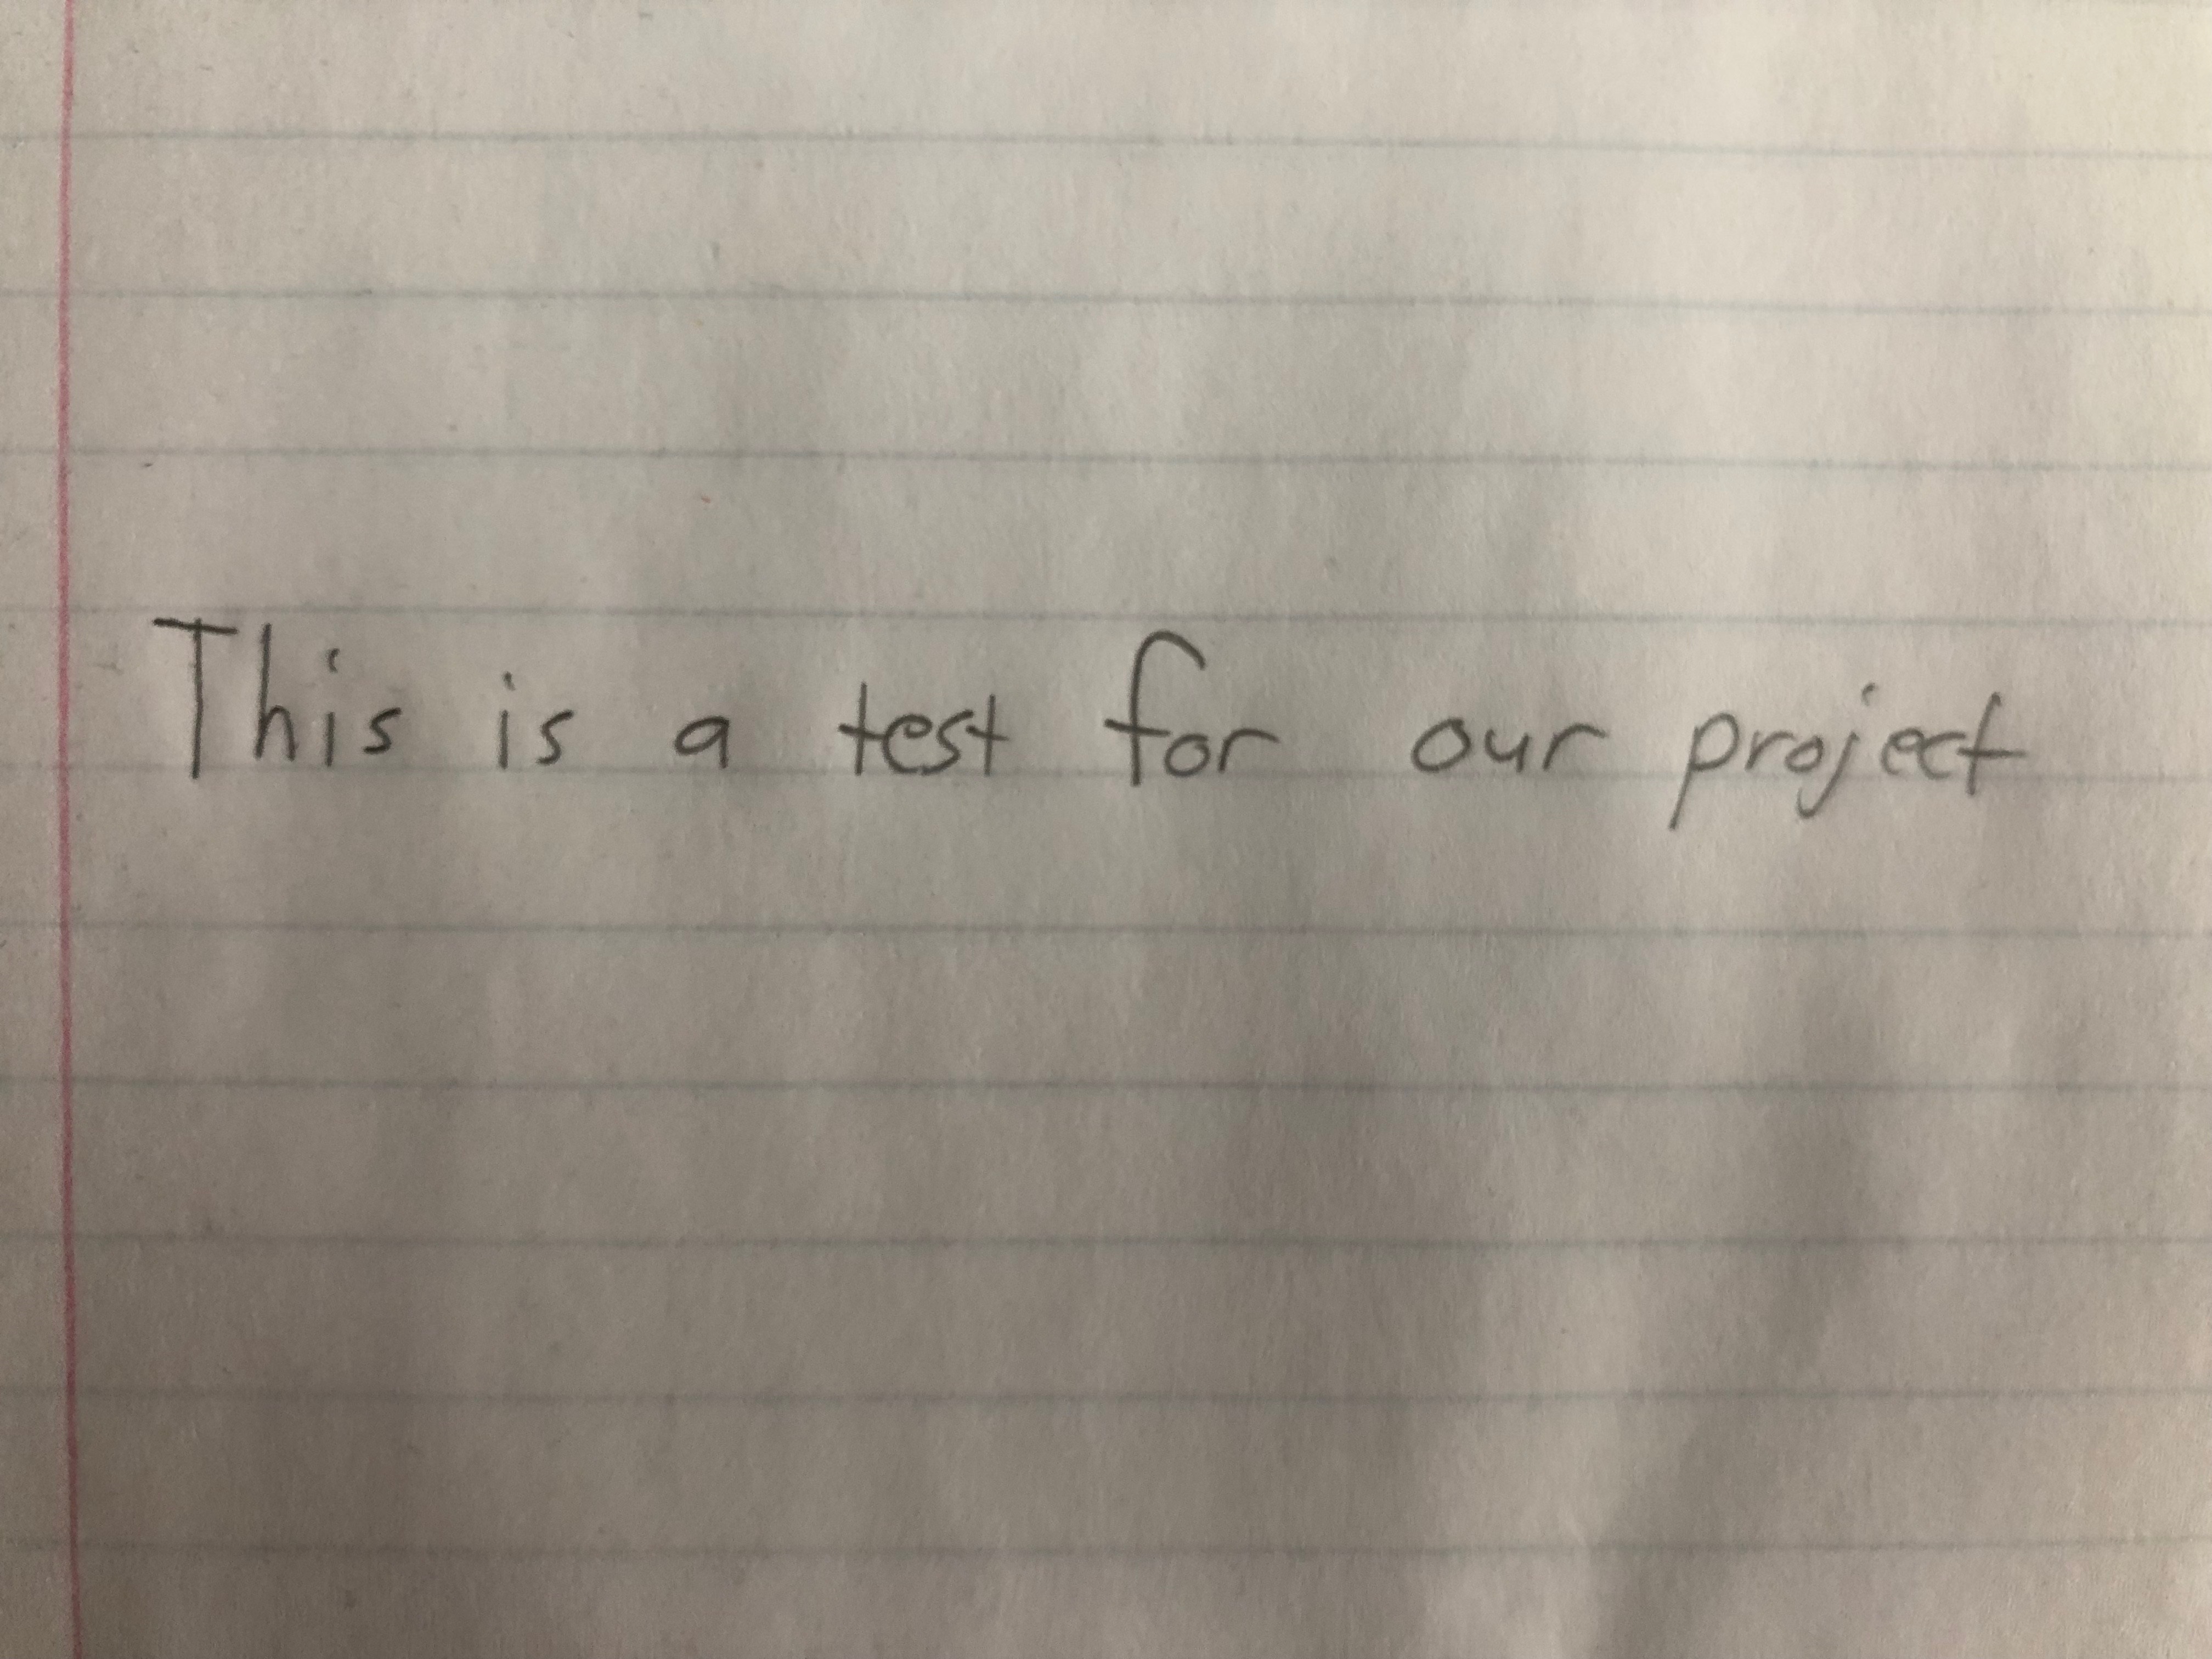 This is a test for our project